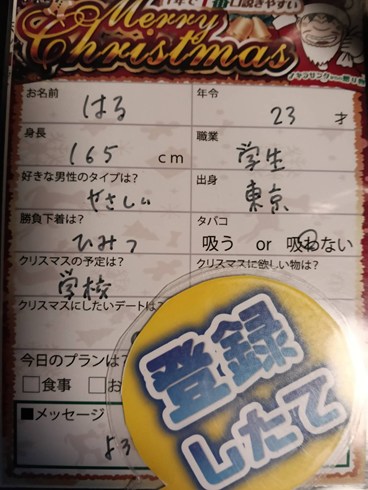 1年で1番口説きやすい
Merry
Christmas
お名前
はる
年令
23 才
身長
165 cm
職業
学生
好きな男性のタイプは?
やさしい
出身
東京
勝負下着は?
ひみつ
タバコ
吸う or 吸わない
クリスマスの予定は?
学校
クリスマスに欲しい物は?
クリスマスにしたいデートは?
今日のプランは?
□食事 □お
■メッセージ
よろ
登録
したて